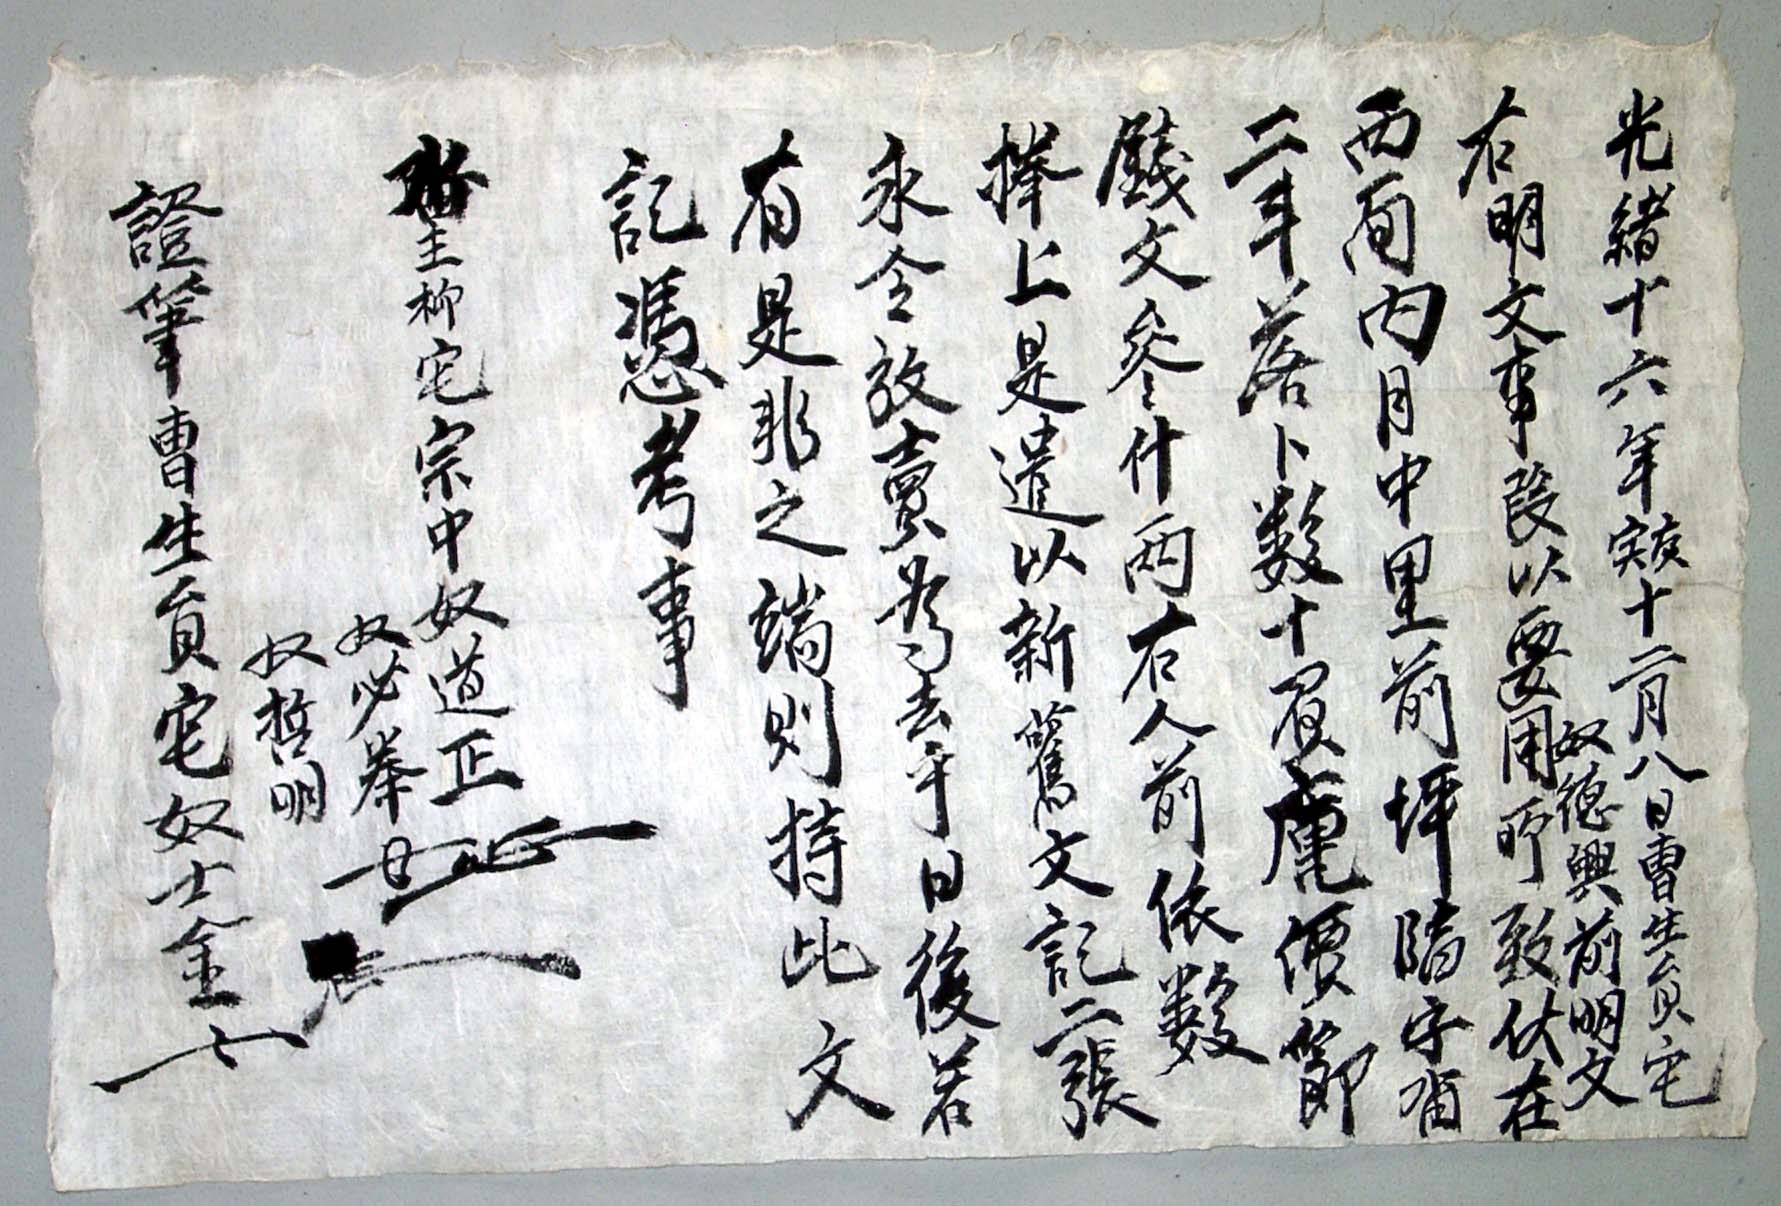 光緒十六年庚寅十二月八日曺生員宅
奴德興前明文
右明文事段以要用所致伏在
西面內月中里前坪字畓
二斗落卜數十負庫價節
錢文參什兩右人前依數
捧上是遣以新舊文記二張
永々放賣爲去乎日後若
有是非之端則持此文
記憑考事
畓主柳宅宗中奴道正
奴必举
奴哲明
證筆曺生員宅奴士金